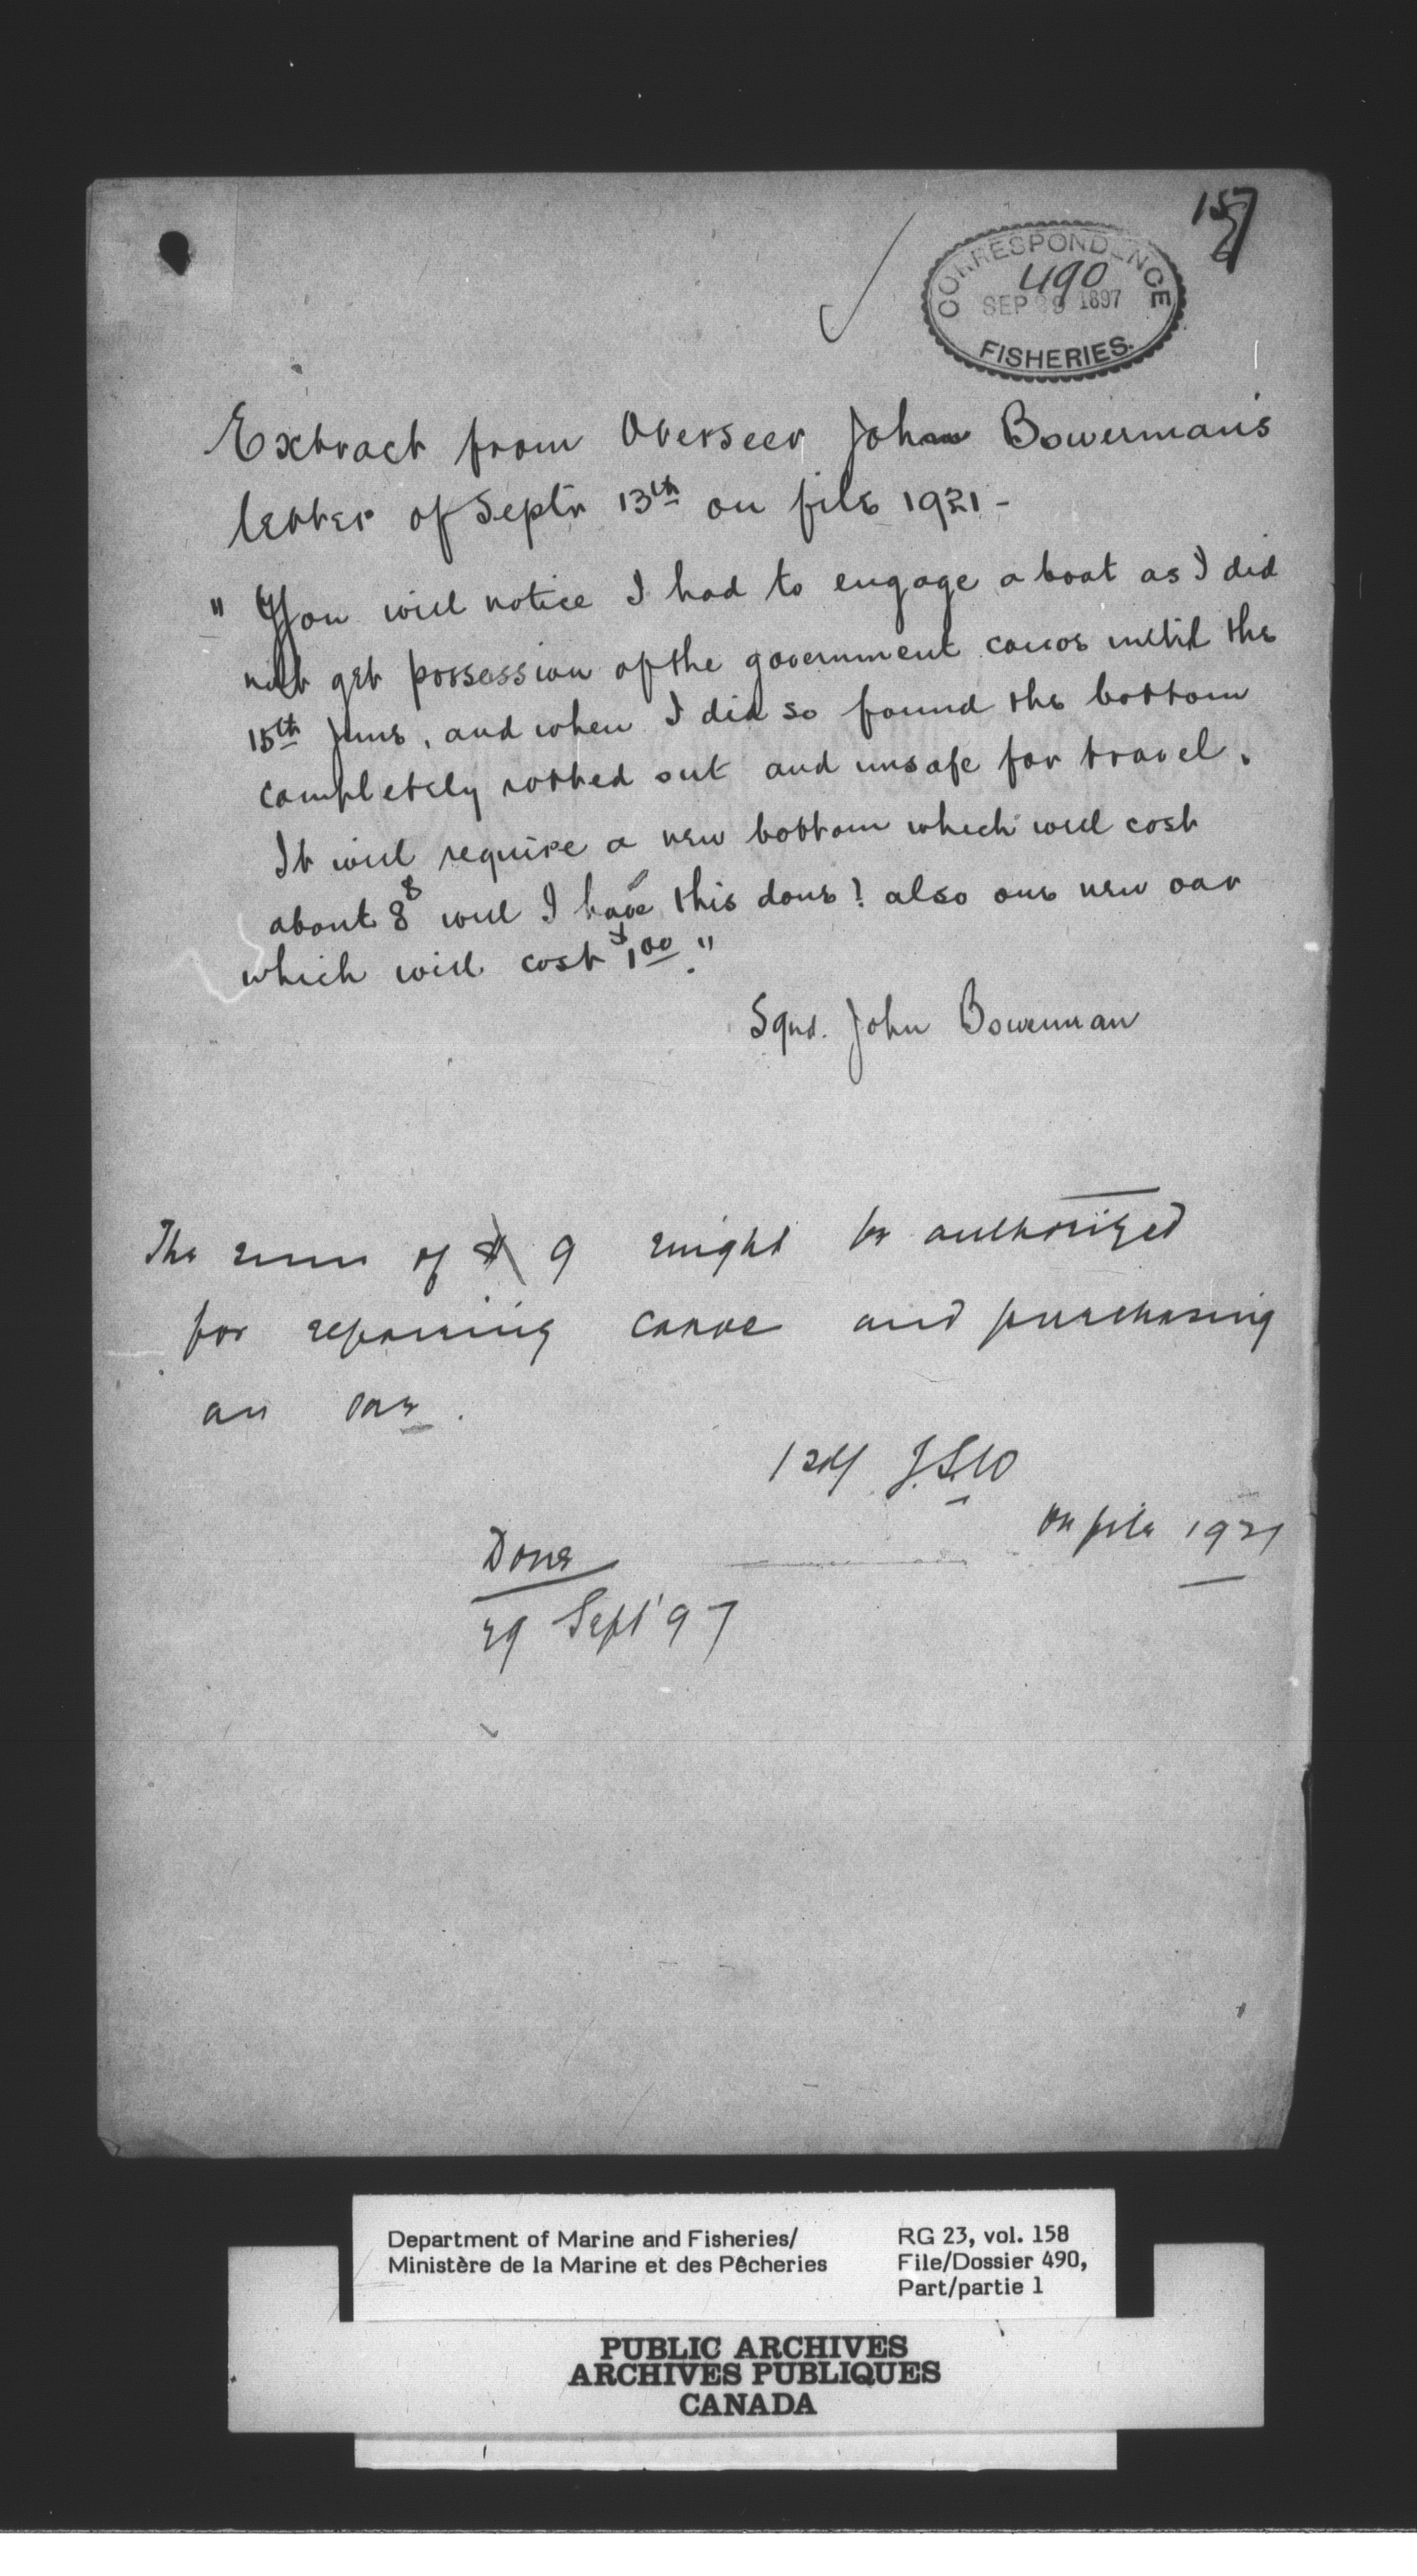 157
CORRESPONDENCE
490
SEP 29 1897
FISHERIES.
Extract from Overseer John Bowerman's
letter of Septr 13th on file 1921 -
" You will notice I had to engage a boat as I did
not get possession of the government canoe until the
15th June, and when I did so found the bottom
completely rotted out and unsafe for travel.
It will require a new bottom which will cost
about $8 will I have this done? also one new oar
which will cost $1.00."
Sgnd. John Bowerman
The sum of $9 might be authorized
for repairing canoe and purchasing
an oar.
on file 1921
Done
29 Sept '97
Department of Marine and Fisheries/
Ministère de la Marine et des Pêcheries
RG 23, vol. 158
File/Dossier 490,
Part/partie 1
PUBLIC ARCHIVES
ARCHIVES PUBLIQUES
CANADA